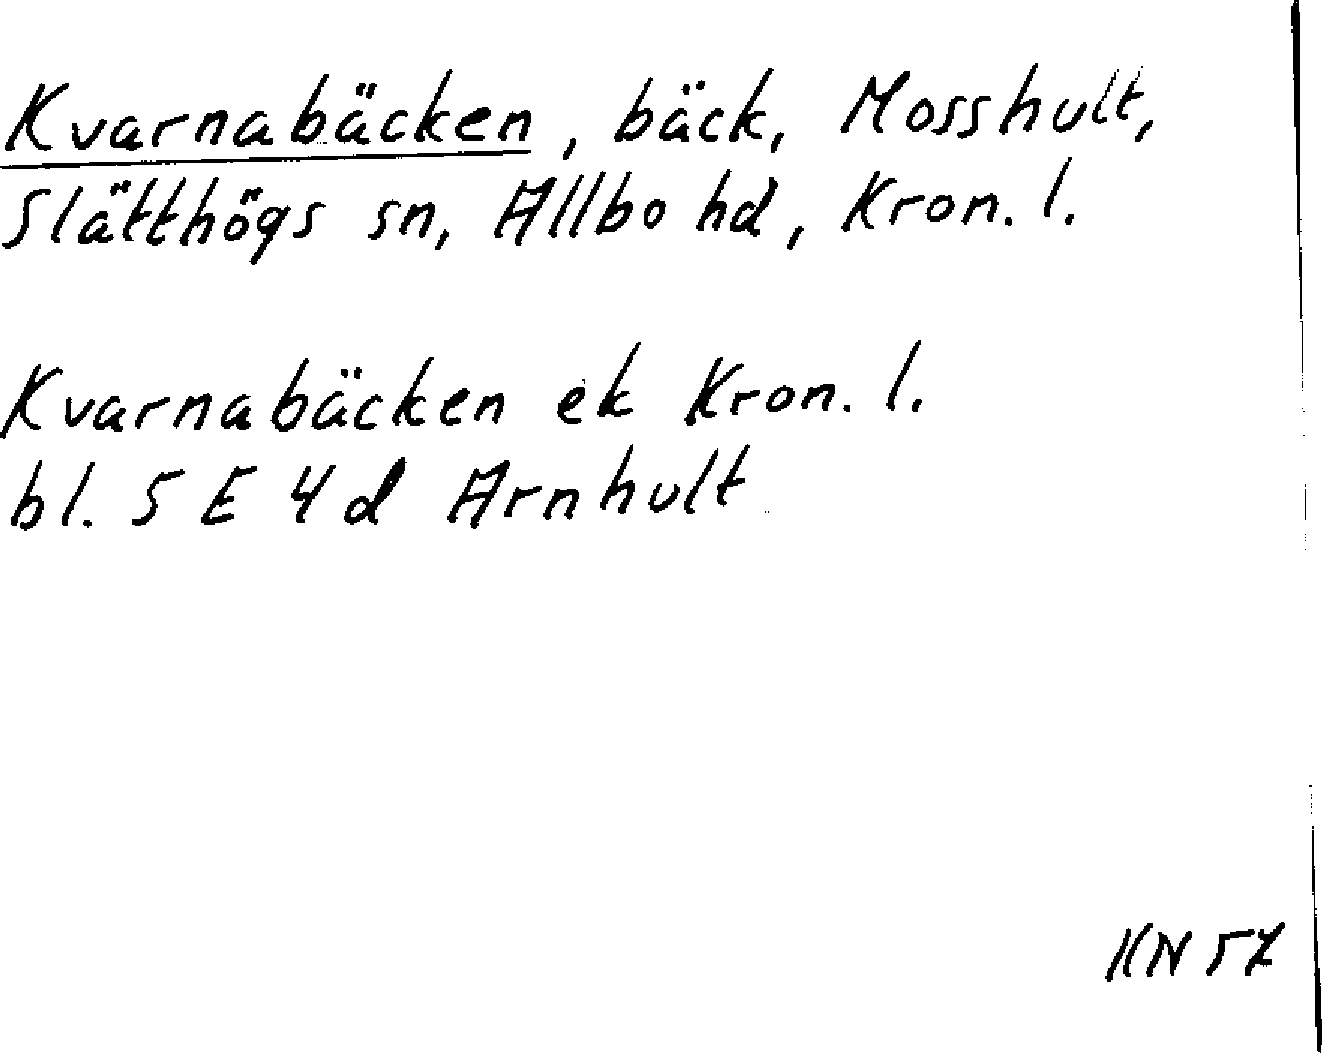 Kvarnabäcken, bäck, Mosshult,
Slätthögs sn, Allbo hd, Kron. l.
Kvarnabäcken ek Kron. l.
bl. 5 E 4 d Arnhult
KN 57